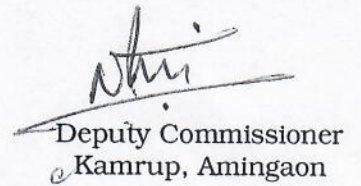 Deputy Commissioner
Kamrup, Amingaon